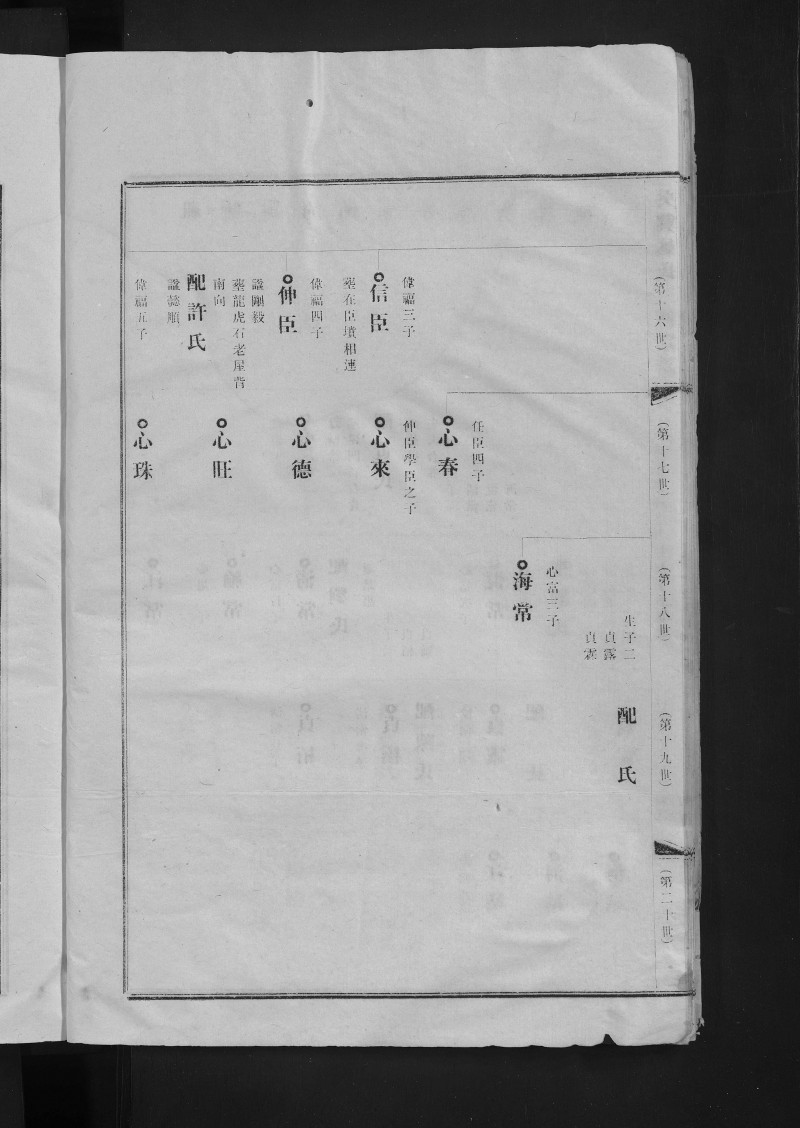 （第十六世）
偉福三子
信臣
塟在臣墳相連
偉福四子
伸臣
諡剛毅
塟龍虎石老屋背
南向
配許氏
諡懿順
偉福五子
（第十七世）
任臣四子
心春
伸臣學臣之子
心來
心德
心旺
心珠
（第十八世）
生子二
貞露
貞霖
心富三子
海常
（第十九世）
配　氏
（第二十世）